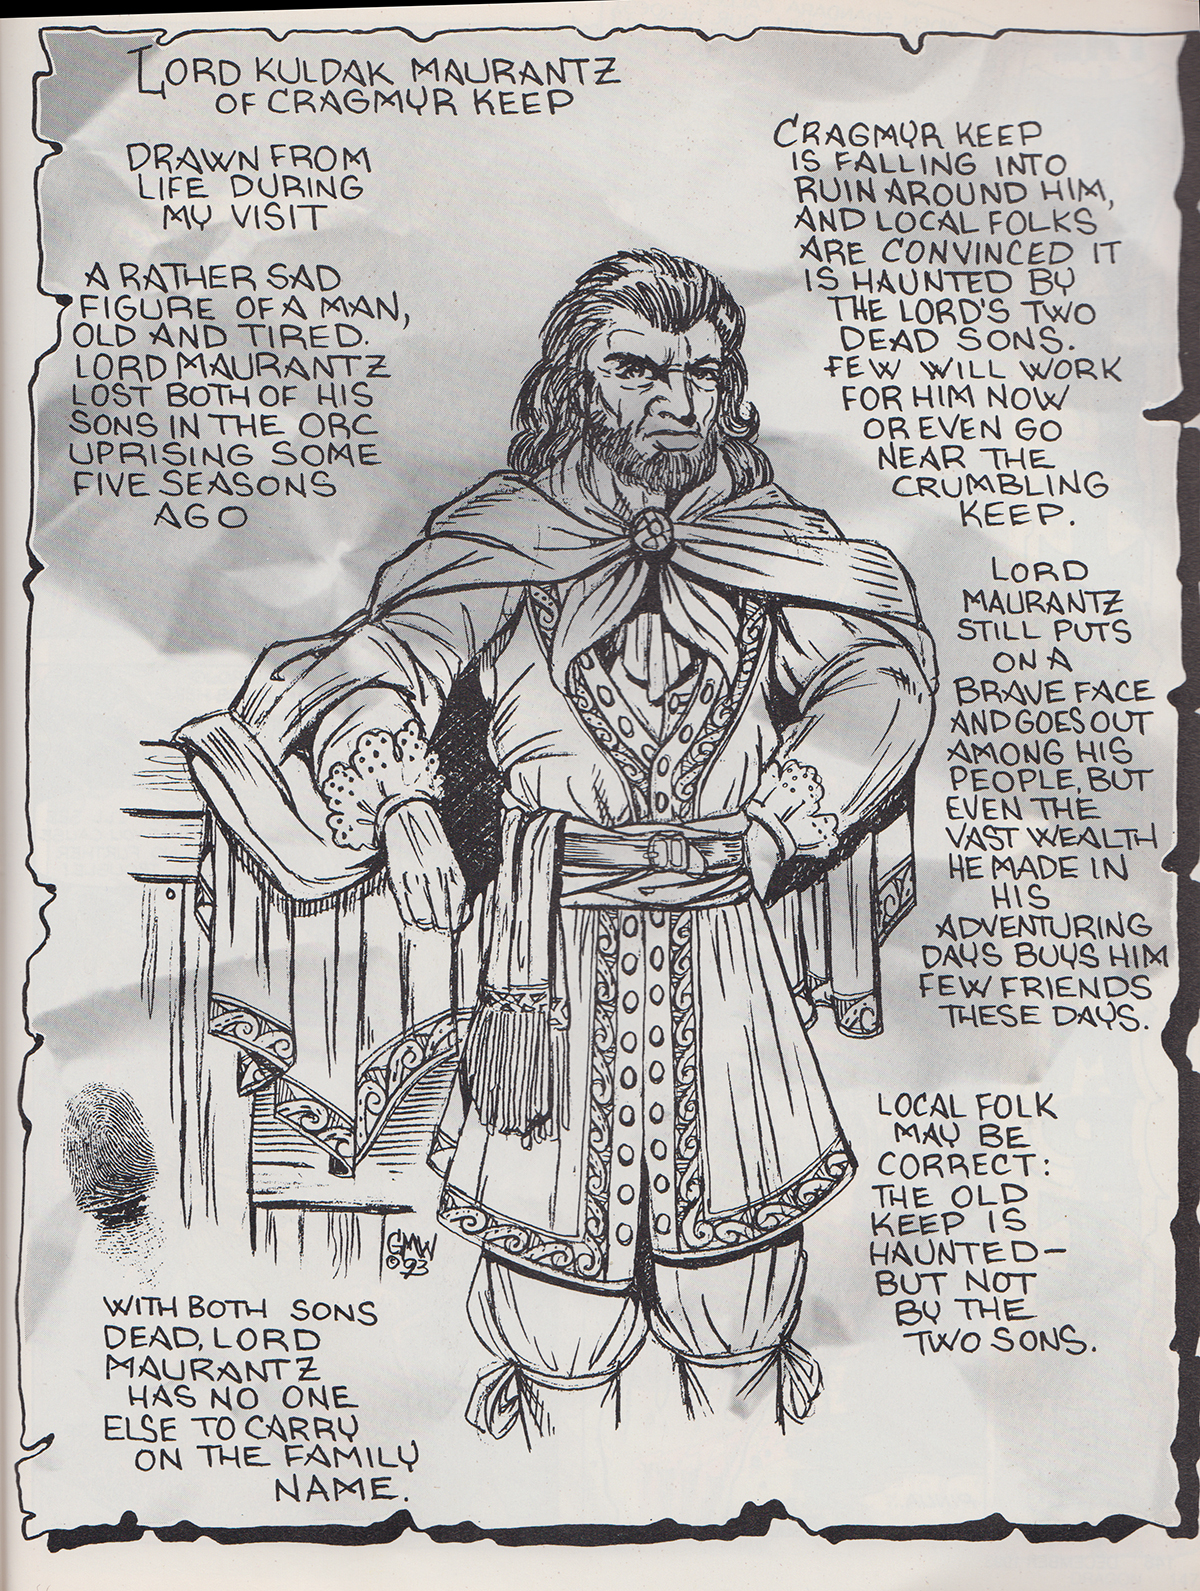 LORD KULDAK MAURANTZ
OF CRAGMYR KEEP
DRAWN FROM
LIFE DURING
MY VISIT
A RATHER SAD
FIGURE OF A MAN,
OLD AND TIRED.
LORD MAURANTZ
LOST BOTH OF HIS
SONS IN THE ORC
UPRISING SOME
FIVE SEASONS
AGO
CRAGMYR KEEP
IS FALLING INTO
RUIN AROUND HIM,
AND LOCAL FOLKS
ARE CONVINCED IT
IS HAUNTED BY
THE LORD'S TWO
DEAD SONS.
FEW WILL WORK
FOR HIM NOW
OR EVEN GO
NEAR THE
CRUMBLING
KEEP.
LORD
MAURANTZ
STILL PUTS
ON A
BRAVE FACE
AND GOES OUT
AMONG HIS
PEOPLE, BUT
EVEN THE
VAST WEALTH
HE MADE IN
HIS
ADVENTURING
DAYS BUYS HIM
FEW FRIENDS
THESE DAYS.
LOCAL FOLK
MAY BE
CORRECT:
THE OLD
KEEP IS
HAUNTED—
BUT NOT
BY THE
TWO SONS.
GMW
©93
WITH BOTH SONS
DEAD, LORD
MAURANTZ
HAS NO ONE
ELSE TO CARRY
ON THE FAMILY
NAME.